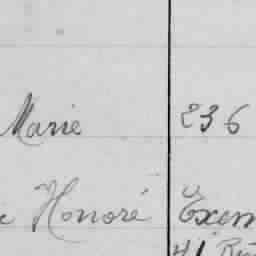 Marie 236
Honoré Exem
41 Rue